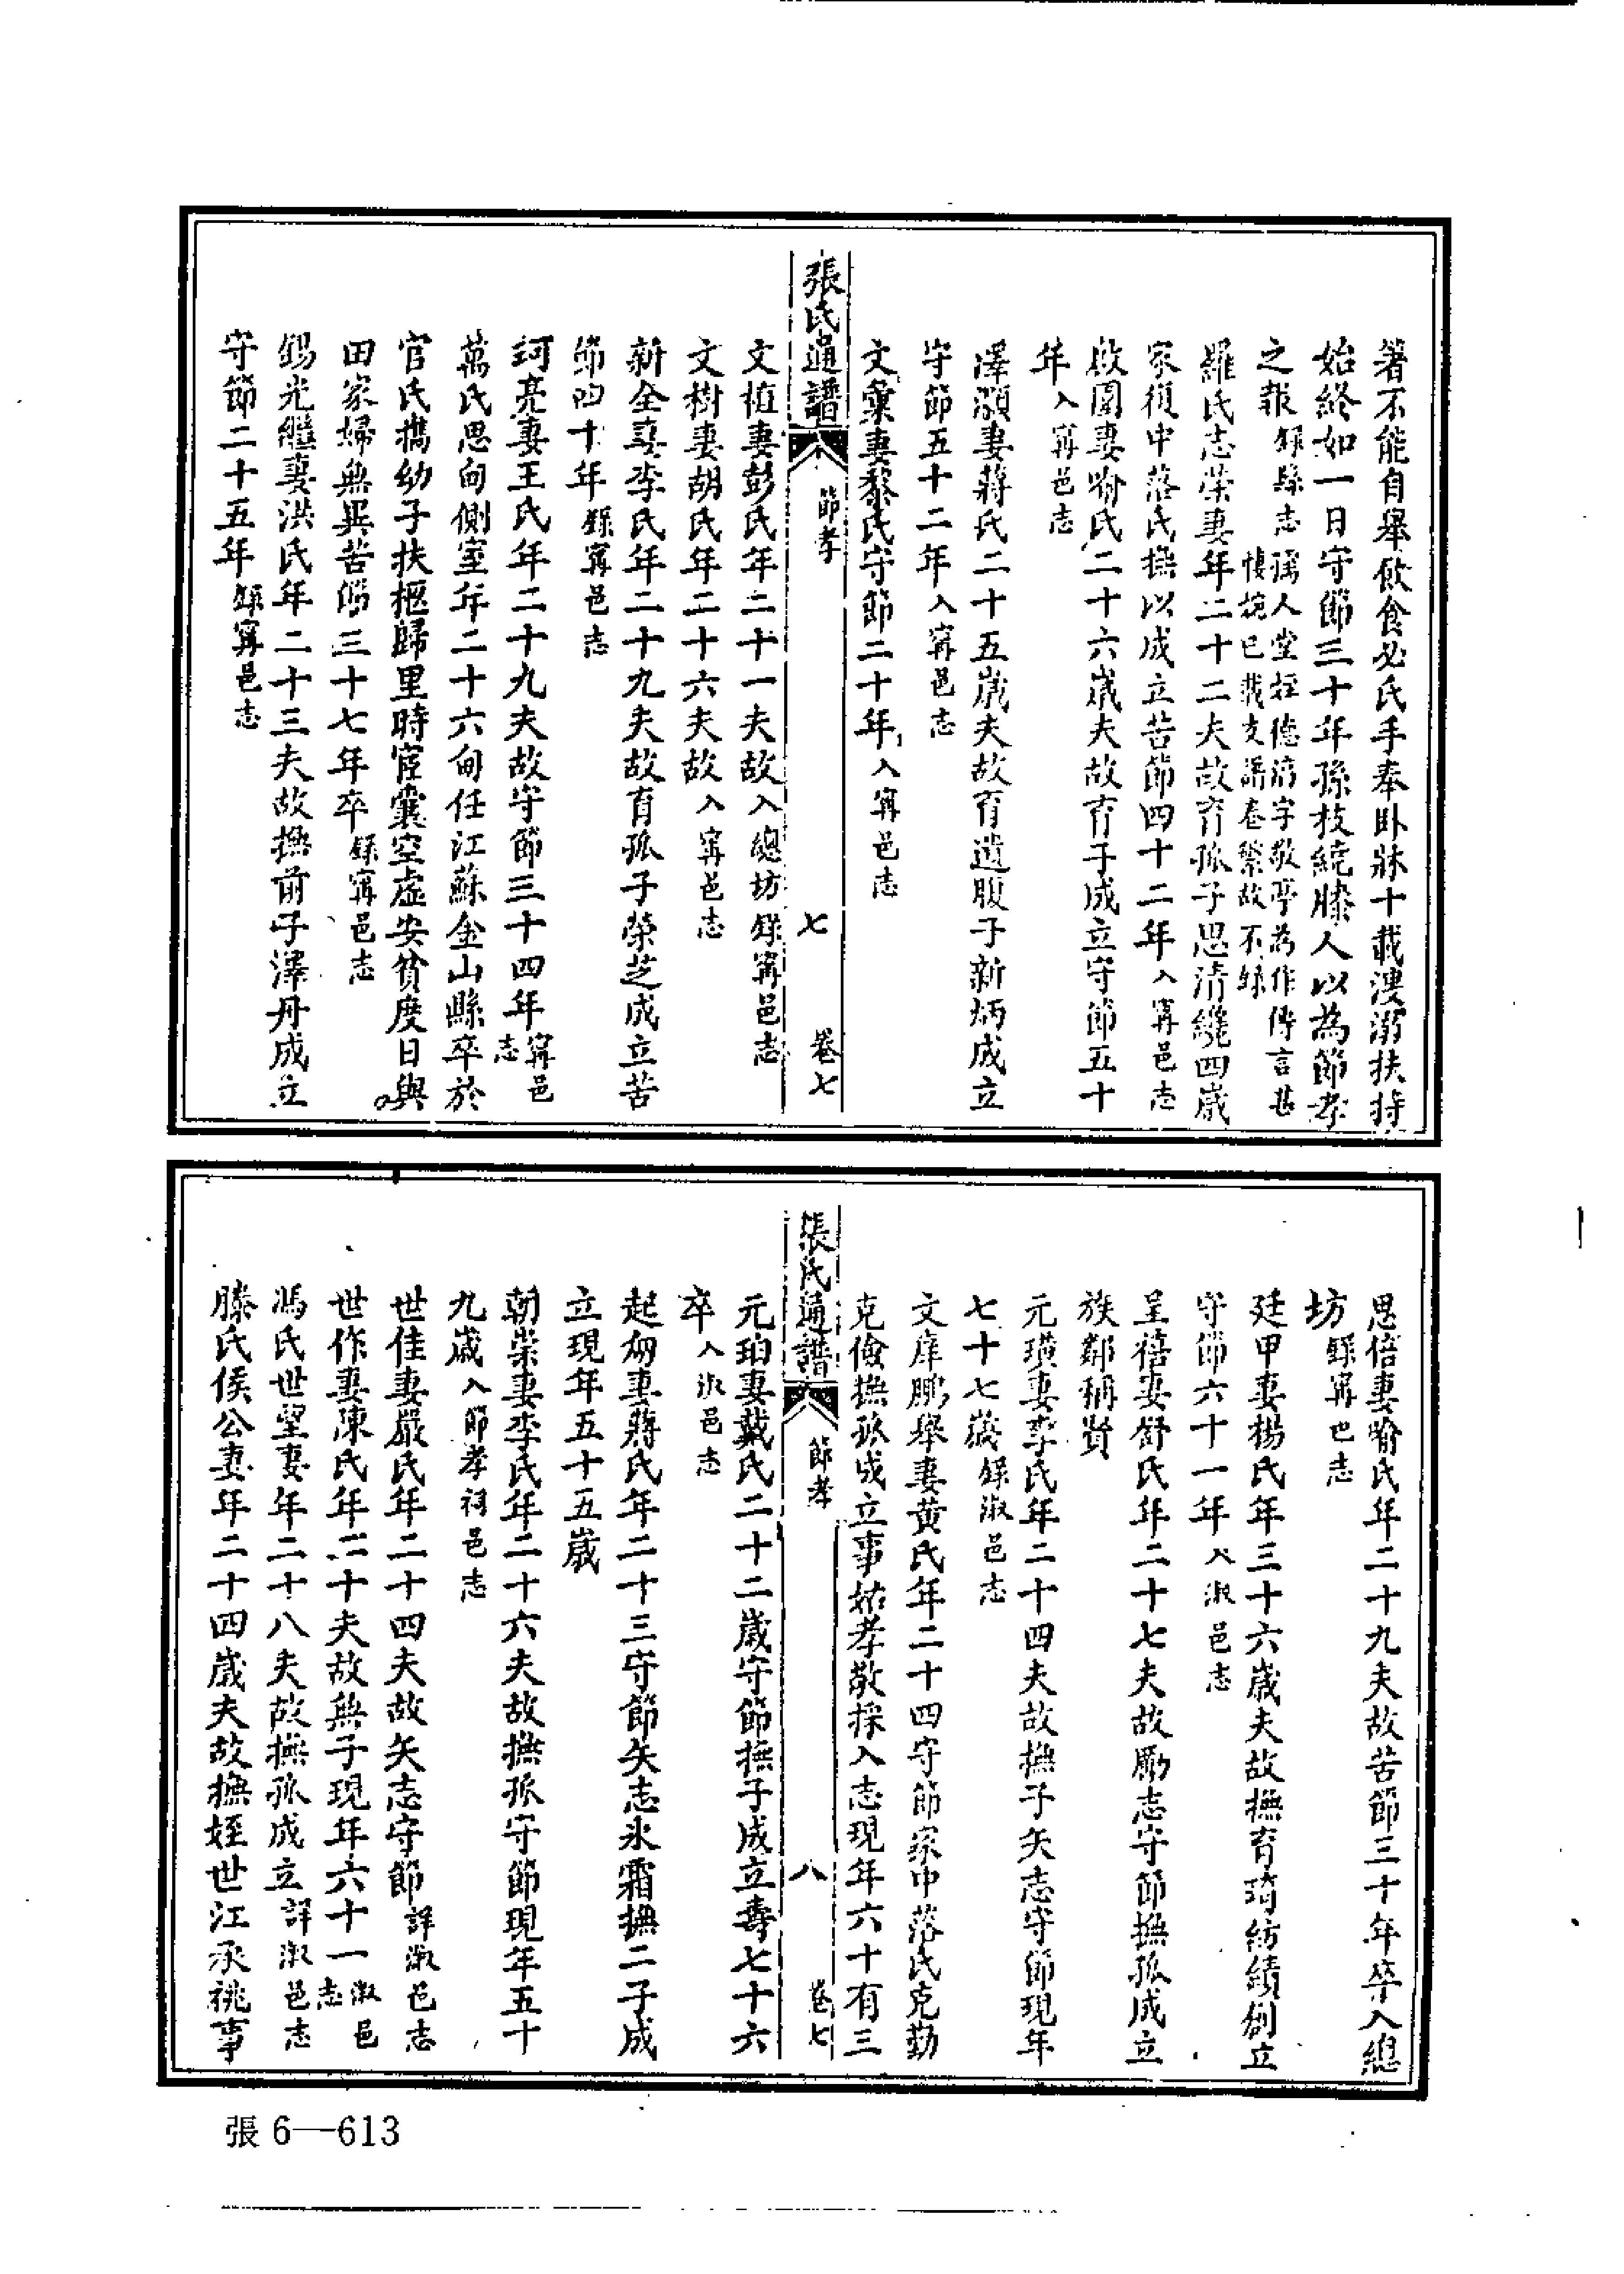 箸不能自舉飲食必氏手奉卧牀十載溲溺扶持
始終如一日守節三十年孫枝繞膝人以為節孝
之報 錄縣志 孺人堂姪德 字敬亭為作傳言甚 悽婉已載支譜卷繁故不錄
羅氏志榮妻年二十二夫故育孤子思清纔四歲
家復中落氏撫以成立苦節四十二年 入甯邑志
啟圍妻喻氏二十六歲夫故育子成立守節五十
年 入甯邑志
澤灝妻蔣氏二十五歲夫故育遺腹子新炳成立
守節五十二年 入甯邑志
文彙妻黎氏守節二十年 入甯邑志
張氏通譜 節孝 七 卷七
文植妻彭氏年二十一夫故 入總坊錄甯邑志
文樹妻胡氏年二十六夫故 入甯邑志
新全妻李氏年二十九夫故育孤子榮芝成立苦
節四十年 錄甯邑志
珂亮妻王氏年二十九夫故守節三十四年 甯邑志
萬氏思甸側室年二十六甸任江蘇金山縣卒於
官氏攜幼子扶櫬歸里時宦囊空虛安貧度日與
田家婦無異苦節三十七年卒 錄甯邑志
錫光繼妻洪氏年二十三夫故撫前子澤丹成立
守節二十五年 錄甯邑志
思倍妻喻氏年二十九夫故苦節三十年卒入總
坊 錄甯邑志
廷甲妻楊氏年三十六歲夫故撫育琦紡績創立
守節六十一年 入淑邑志
呈禧妻舒氏年二十七夫故勵志守節撫孤成立
族鄰稱賢
元璜妻李氏年二十四夫故撫子矢志守節現年
七十七歲 錄淑邑志
文庠鵬舉妻黃氏年二十四守節家中落氏克勤
克儉撫孤成立事姑孝敬採入志現年六十有三
張氏通譜 節孝 八 卷七
元珀妻戴氏二十二歲守節撫子成立壽七十六
卒 入淑邑志
起 妻蔣氏年二十三守節矢志氷霜撫二子成
立現年五十五歲
朝崇妻李氏年二十六夫故撫孤守節現年五十
九歲 入節孝祠邑志
世佳妻嚴氏年二十四夫故矢志守節 詳淑邑志
世作妻陳氏年二十夫故無子現年六十一 淑邑志
馮氏世望妻年二十八夫故撫孤成立 詳淑邑志
滕氏侯公妻年二十四歲夫故撫姪世江承祧事
張6—613